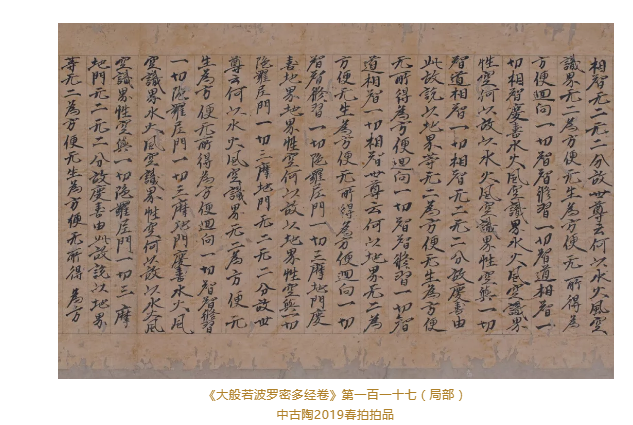 相智无二无二分故世尊云何以水火風空
識界无二為方便无生為方便无所得為
方便迴向一切智智修習一切智道相智一
切相智慶喜水火風空識界水火風空識界
性空何以故以水火風空識界性空與一切
智道相智一切相智无二无二分故慶喜由
此故說以地界等无二為方便无生為方便
无所得為方便迴向一切智智修習一切智
道相智一切相智世尊云何以地界无二為
方便无生為方便无所得為方便迴向一切
智智修習一切陁羅尼門一切三摩地門慶
喜地界地界性空何以故以地界性空與一切
陁羅尼門一切三摩地門无二无二分故世
尊云何以水火風空識界无二為方便无
生為方便无所得為方便迴向一切智智修習
一切陁羅尼門一切三摩地門慶喜水火風
空識界水火風空識界性空何以故以水火風
空識界性空與一切陁羅尼門一切三摩
地門无二无二分故慶喜由此故說以地界
等无二為方便无生為方便无所得為方
《大般若波罗密多经卷》第一百一十七（局部）
中古陶2019春拍拍品